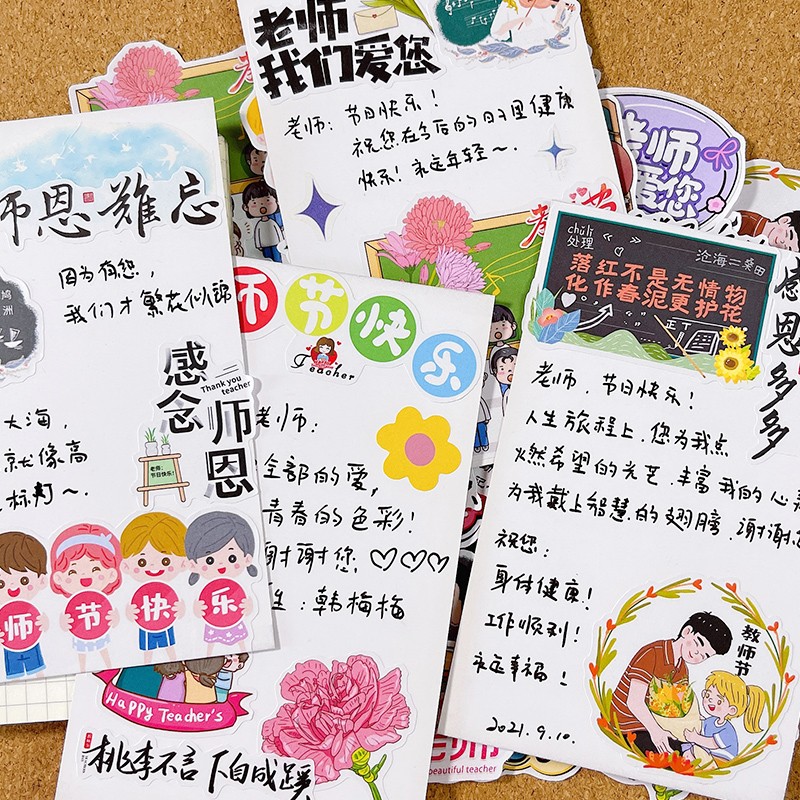 老师
我们爱您
老师：节日快乐！
祝您在今后的日子里健康
快乐！永远年轻～.
老师
爱您
师恩难忘
因为有您，
我们才繁花似锦
感念
师恩
Thank you
teacher
老师：
节日快乐！
大海，
就像高
标灯～.
师 节 快 乐
师节快乐
Teacher
老师：
全部的爱，
青春的色彩！
谢谢您.♡♡♡
生：韩梅梅
Happy Teacher's
桃李不言 下自成蹊
beautiful teacher
chǔlǐ
处理
沧海一桑田
落红不是无情物
化作春泥更护花
正丅
感恩多多
老师，节日快乐！
人生旅程上，您为我点
燃希望的光芒，丰富我的心
为我戴上智慧的翅膀，谢谢您
祝您：
身体健康！
工作顺利！
永远幸福！
2021.9.10.
教师节